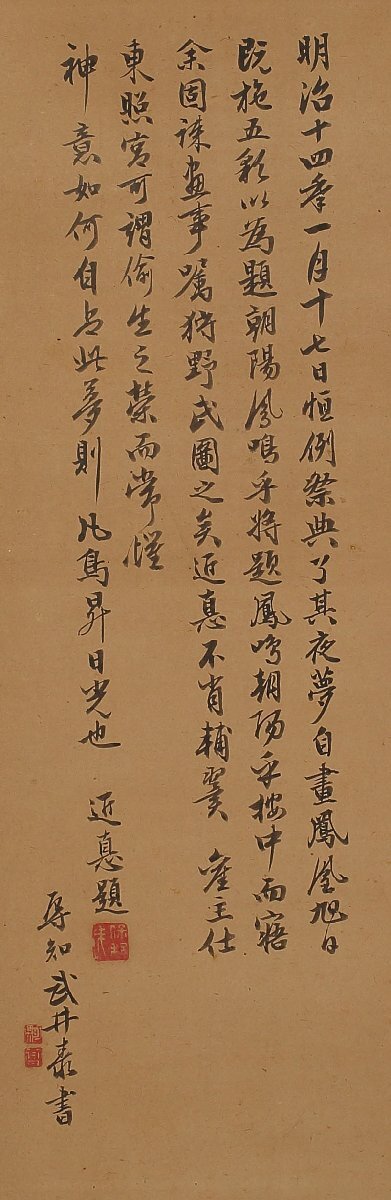 明治十四季一月十七日恒例祭典了其夜夢自畫鳳凰旭日
既施五彩以為題朝陽鳳鳴乎将題鳳鳴朝陽乎按中而寤
余固踈畫事嘱狩野氏圖之矣近悳不肖輔翼 舊主仕
東照宮可謂偷生之榮而常懼
神意如何自占此夢則凡鳥昇日光也 近悳題
辱知武井泰書